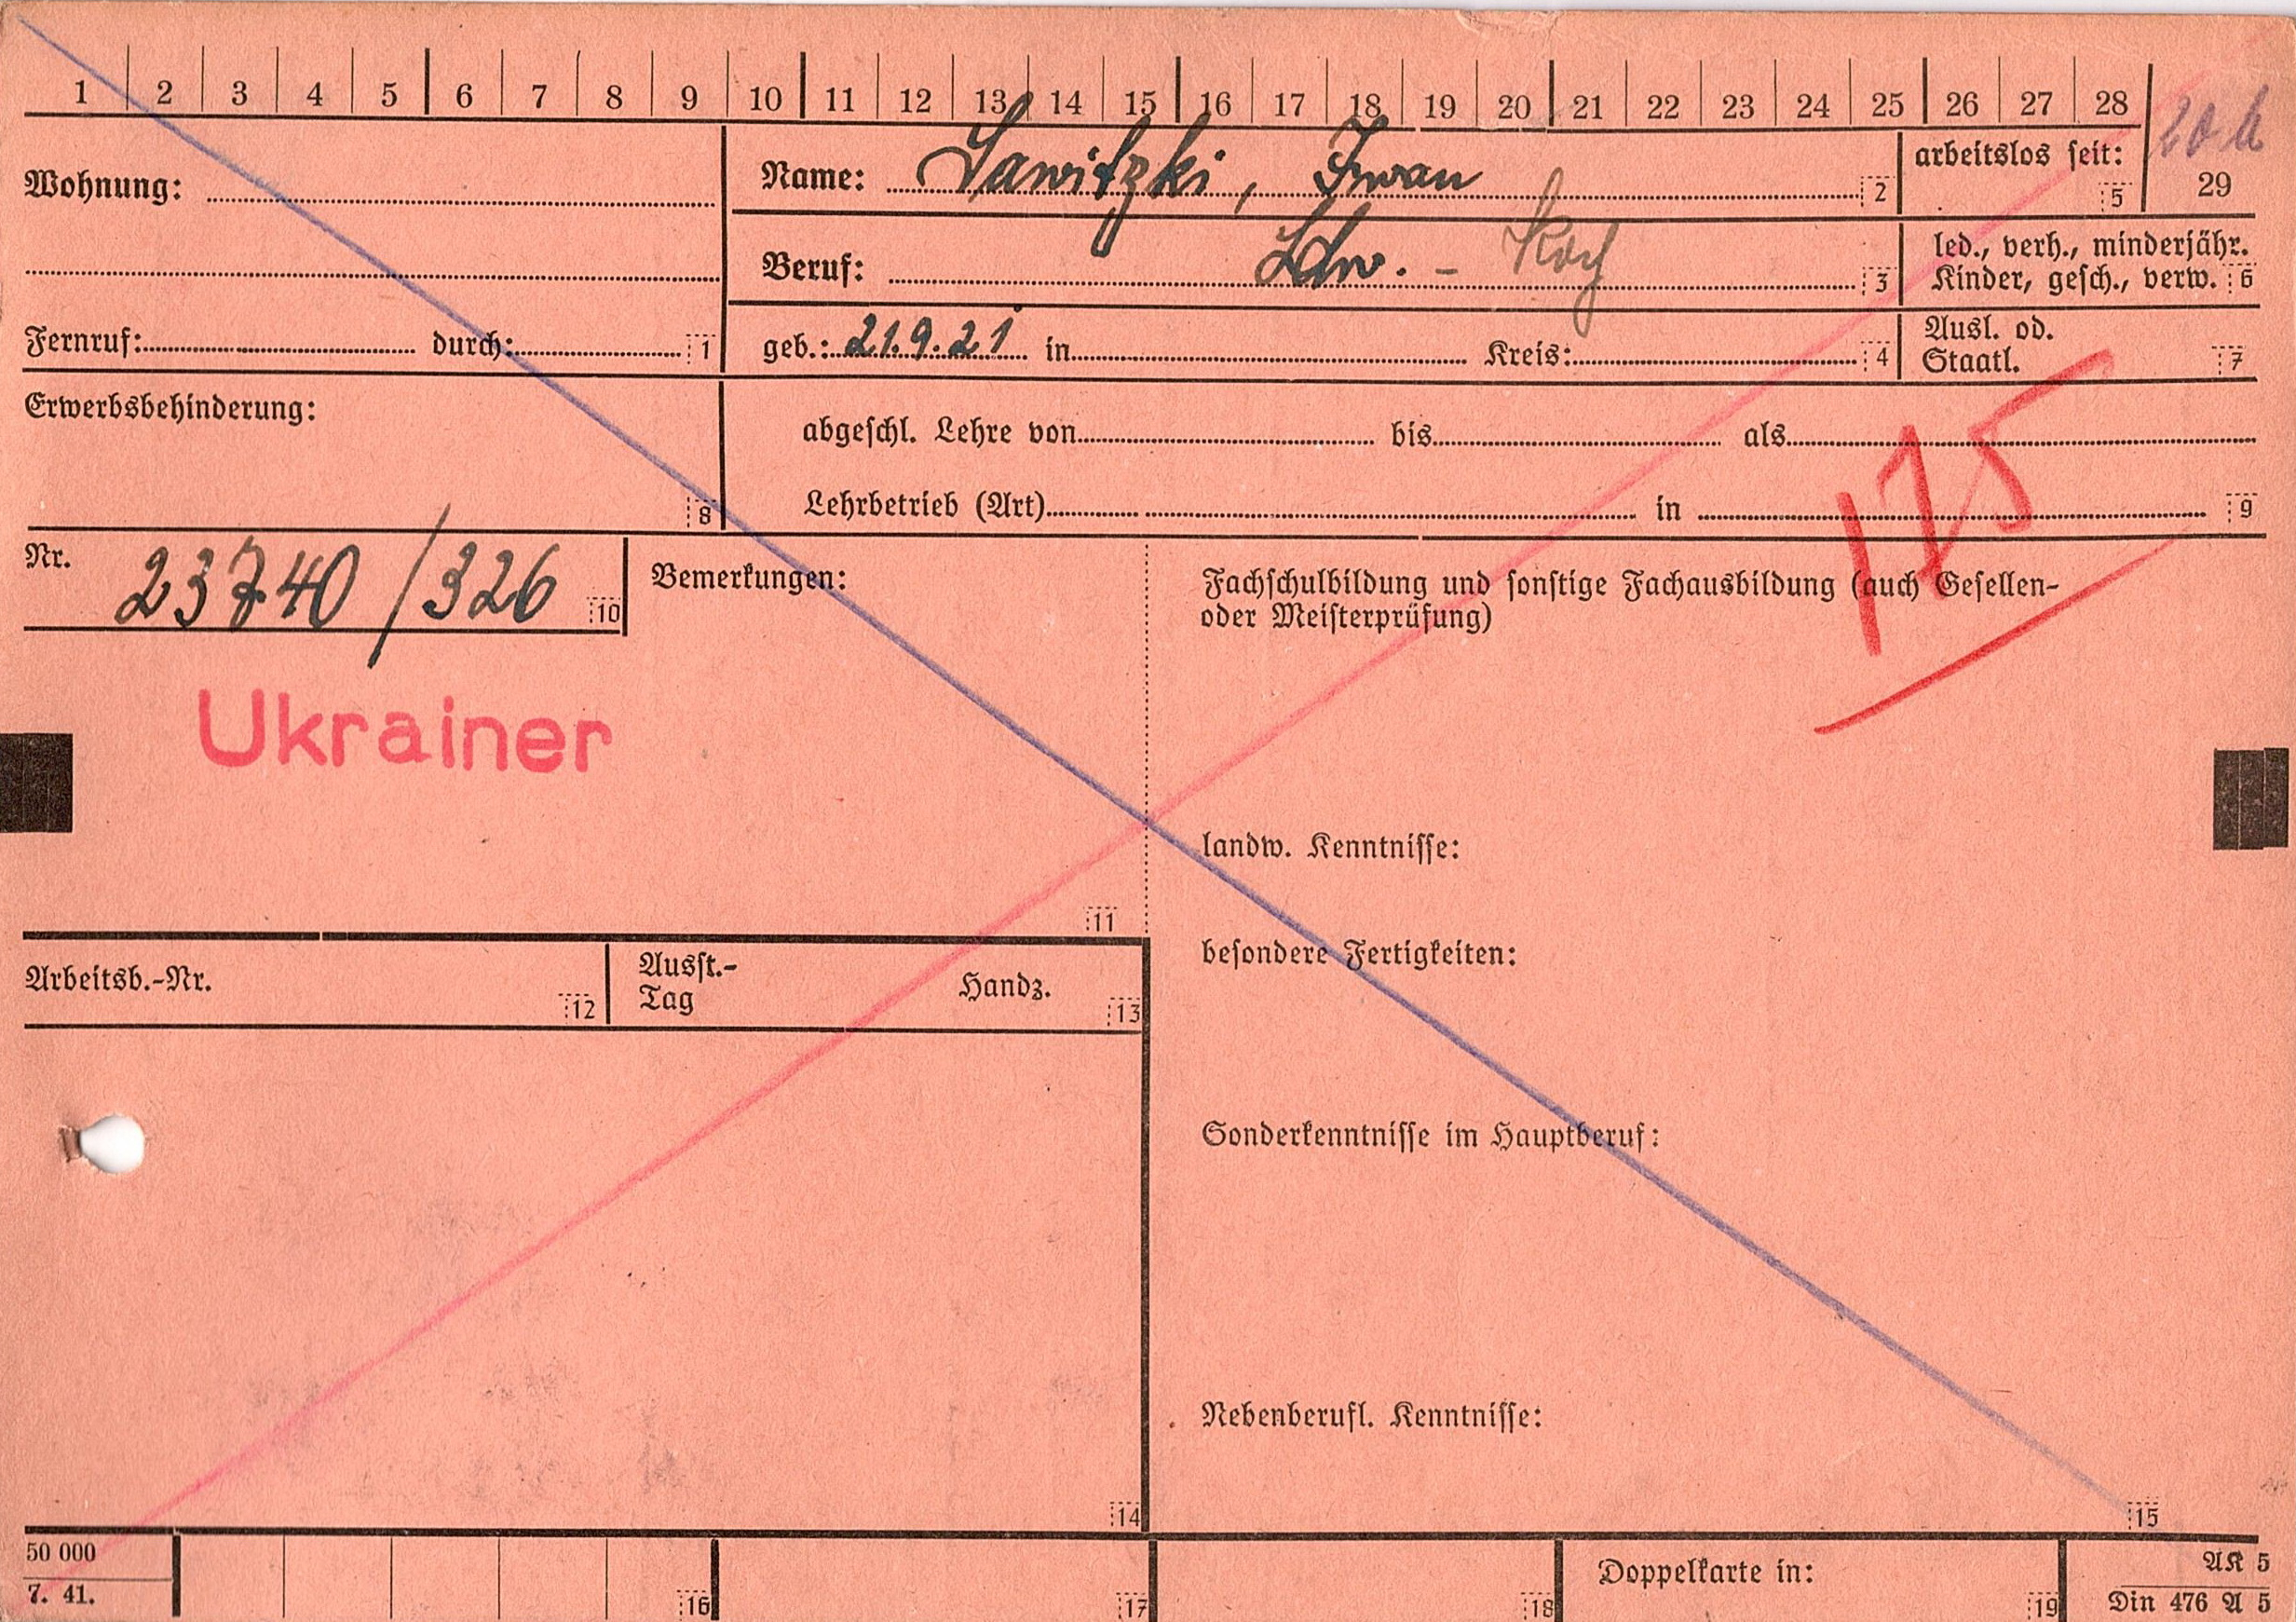 1 2 3 4 5 6 7 8 9 10 11 12 13 14 15 16 17 18 19 20 21 22 23 24 25 26 27 28
29
Wohnung:
Name: Sawitzki, Iwan 2
arbeitslos seit: 5
Beruf: Ldw. - Koch 3
led., verh., minderjähr.
Kinder, gesch., verw. 6
Fernruf: durch: 1
geb.: 21.9.21 in Kreis: 4
Ausl. od.
Staatl. 7
Erwerbsbehinderung:
8
abgeschl. Lehre von bis als
Lehrbetrieb (Art) in 9
175
Nr. 23740/326 10
Bemerkungen:
Fachschulbildung und sonstige Fachausbildung (auch Gesellen-
oder Meisterprüfung)
Ukrainer
landw. Kenntnisse:
11
besondere Fertigkeiten:
Arbeitsb.-Nr. 12
Ausst.-
Tag
Handz. 13
Sonderkenntnisse im Hauptberuf:
Nebenberufl. Kenntnisse:
14
15
50 000
7. 41.
16
17
18
Doppelkarte in: 19
AK 5
Din 476 A 5